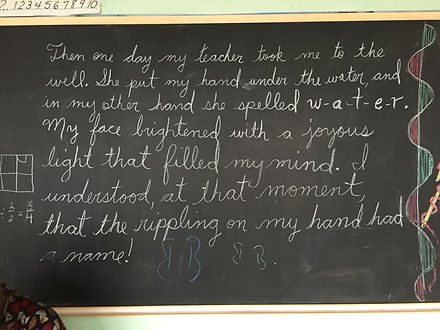 ?. 1 2 3 4 5 6 7 8 9 10
Then one day my teacher took me to the
well. She put my hand under the water, and
in my other hand she spelled w-a-t-e-r.
My face brightened with a joyous
light that filled my mind. I
understood, at that moment,
that the rippling on my hand had
a name!